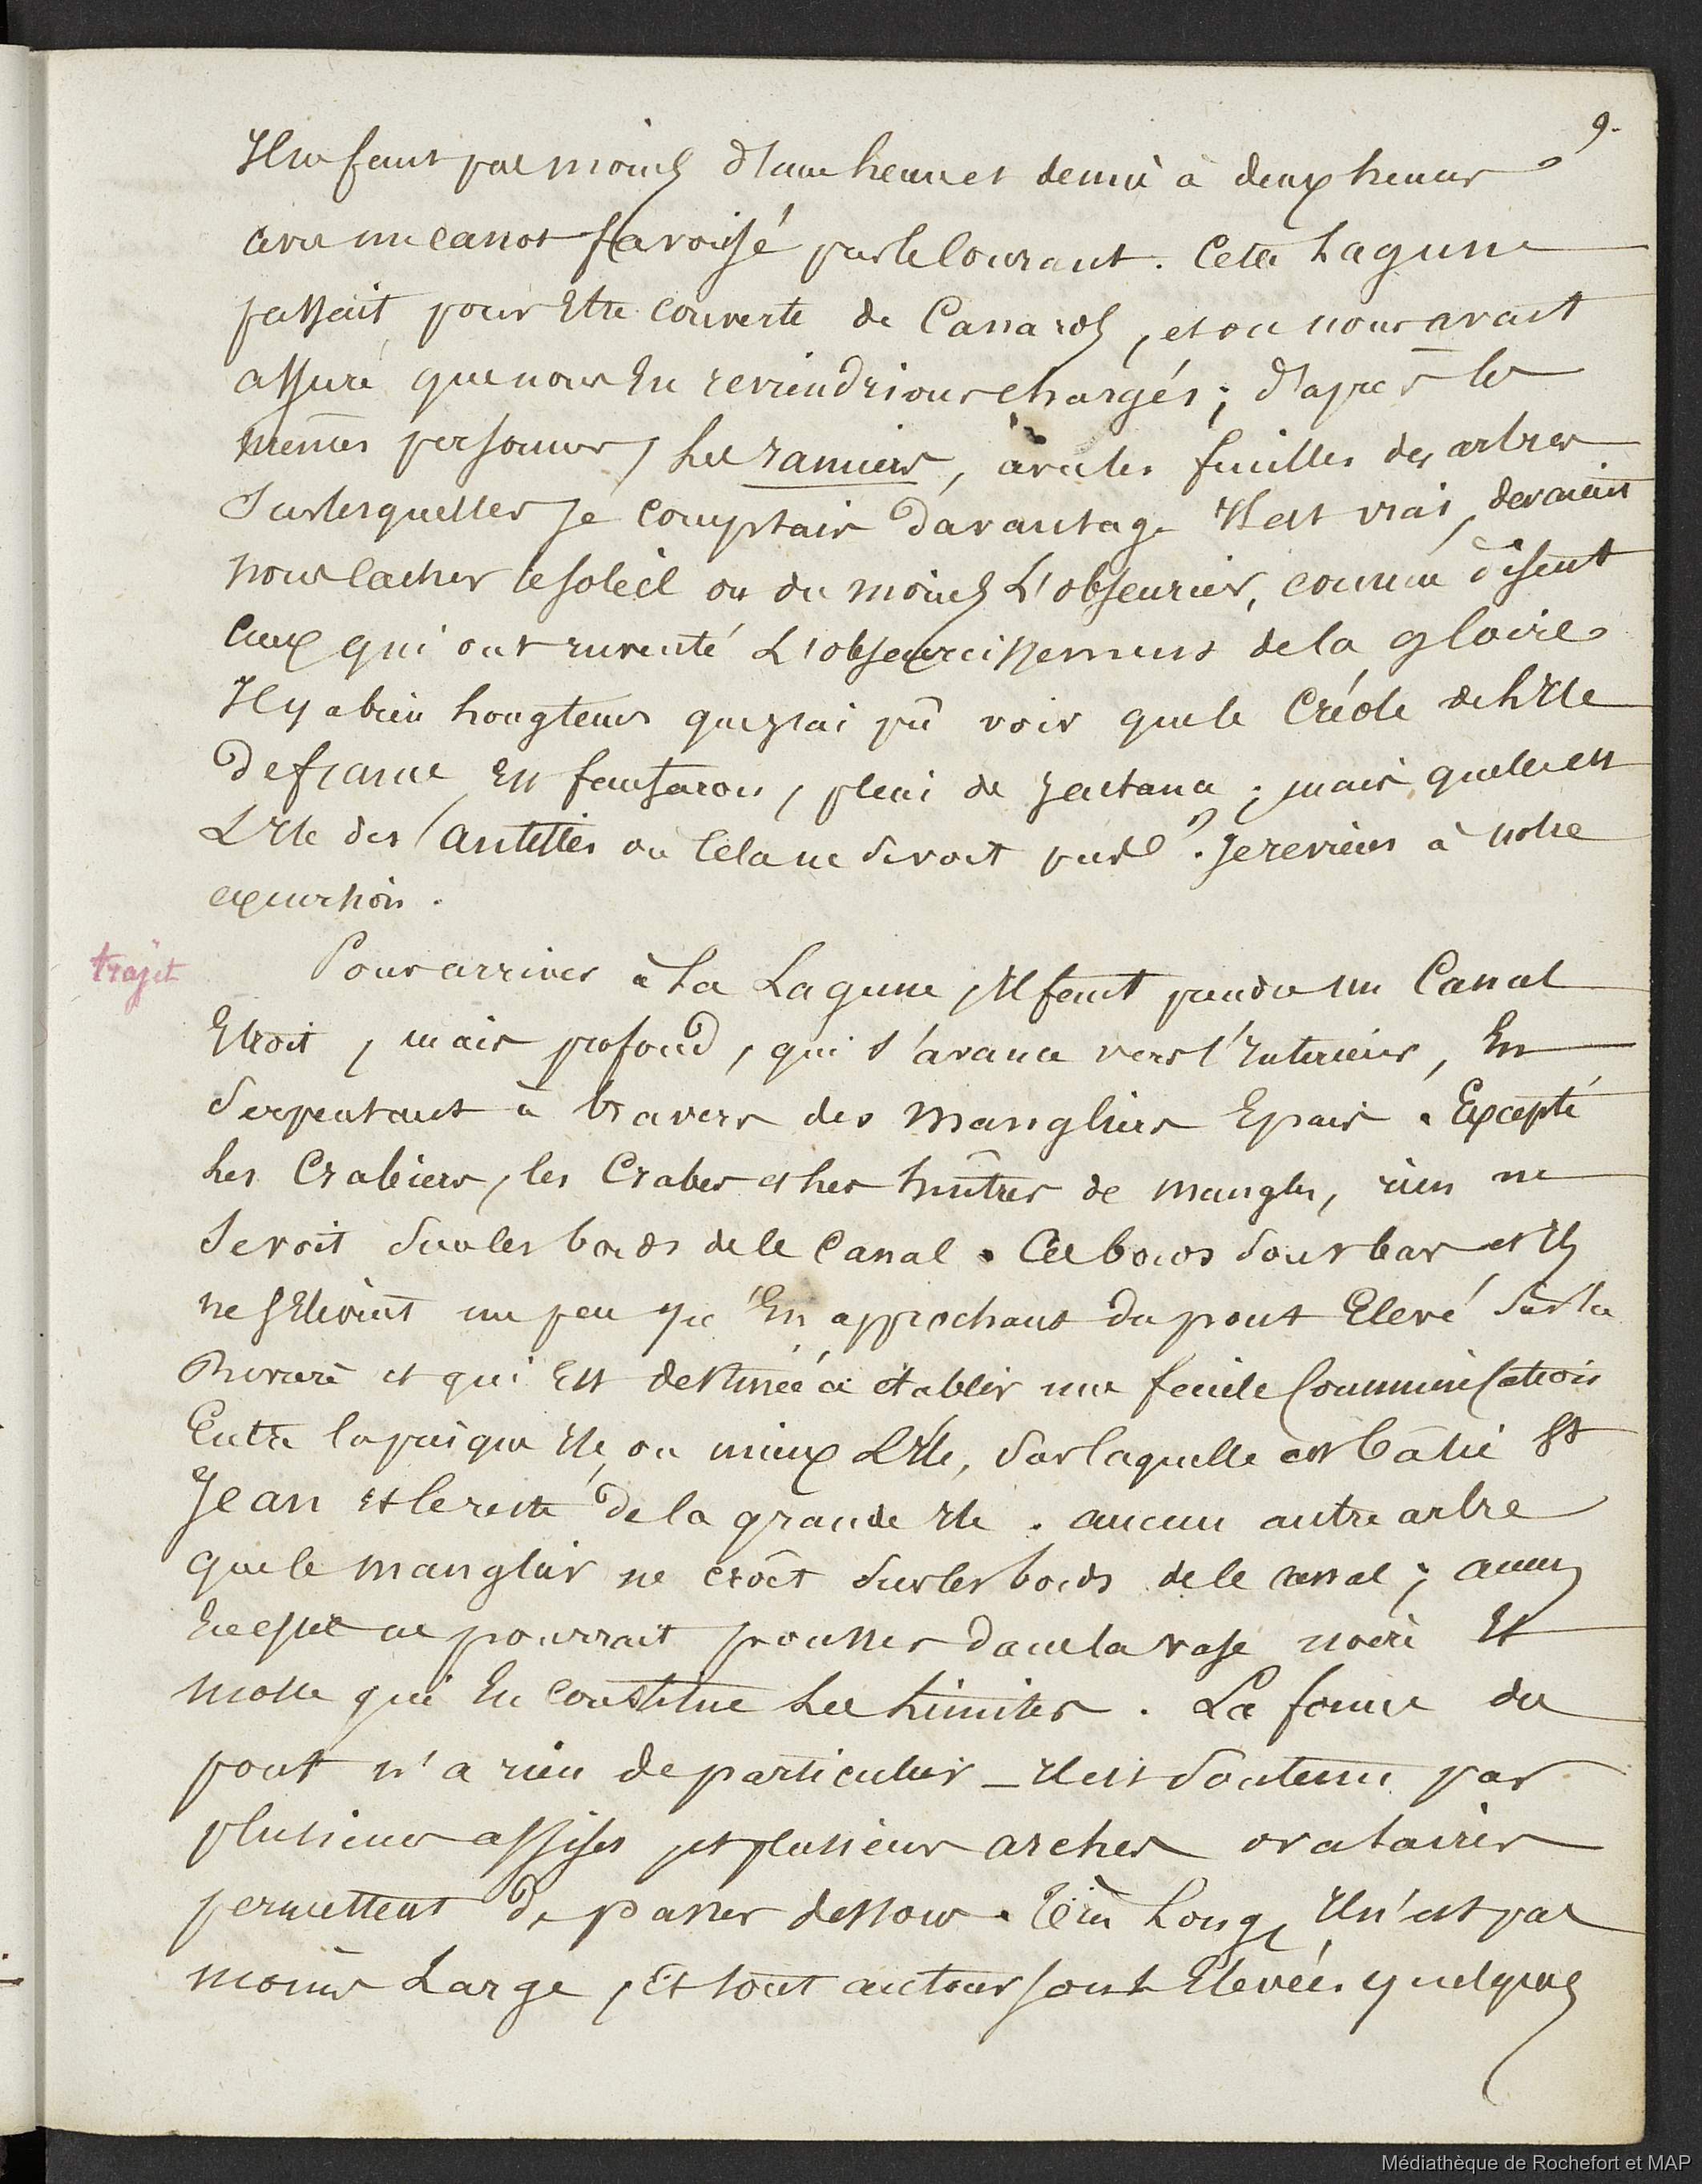 9.
Il ne faut pas moins d'une heure et demie à deux heures
avec un canot favorisé par le Courant. Cette Lagune
passait pour Etre couverte de Canards, et on nous avait
assuré que nous En reviendrions chargés; d'après les
mêmes personnes, Les ramiers, avec les feuilles des arbres
Sur lesquelles Je comptais Davantage Il est vrai, devaient
nous cacher le soleil ou du moins L'obscurcir, comme disent
Ceux qui ont inventé L'obscurcissement de la gloire.
Il y a bien Longtems que j'ai pû voir que le Créole de L'Ile
De france Est fanfaron, plein de Jactance; mais quelle est
L'Ile des Antilles où Cela ne Se voit pas? Je reviens à notre
excursion.
trajet
Pour arriver à La Lagune, Il faut prendre un Canal
Etroit, mais profond, qui s'avance vers l'Interieur, En
Serpentant à travers des Mangliers Epais. Excepté
Les Crabiers, les Crabes et Les huîtres de mangles, rien ne
Se voit Sur les bords de ce Canal. Ces bords Sont bas et Ils
ne s'Elèvent un peu qu'En approchant du pont Elevé Sur la
Rivière et qui Est destinée à établir une facile Communication
Entre la presqu'Ile, ou mieux L'Ile, Sur laquelle est bâtie St
Jean Et le reste De la grande Ile. aucun autre arbre
que le manglier ne croît Sur les bords de ce canal; aucun
En effet ne pourrait pousser dans la vase noire Et
molle qui En constitue Les Limites. La forme du
pont n'a rien de particulier _ Il est Soutenu par
plusieurs assises, et plusieurs arches
permettent De passer dessous. Très Long, Il n'est pas
moins Large, Et tout autour sont Elevées quelques
Médiathèque de Rochefort et MAP